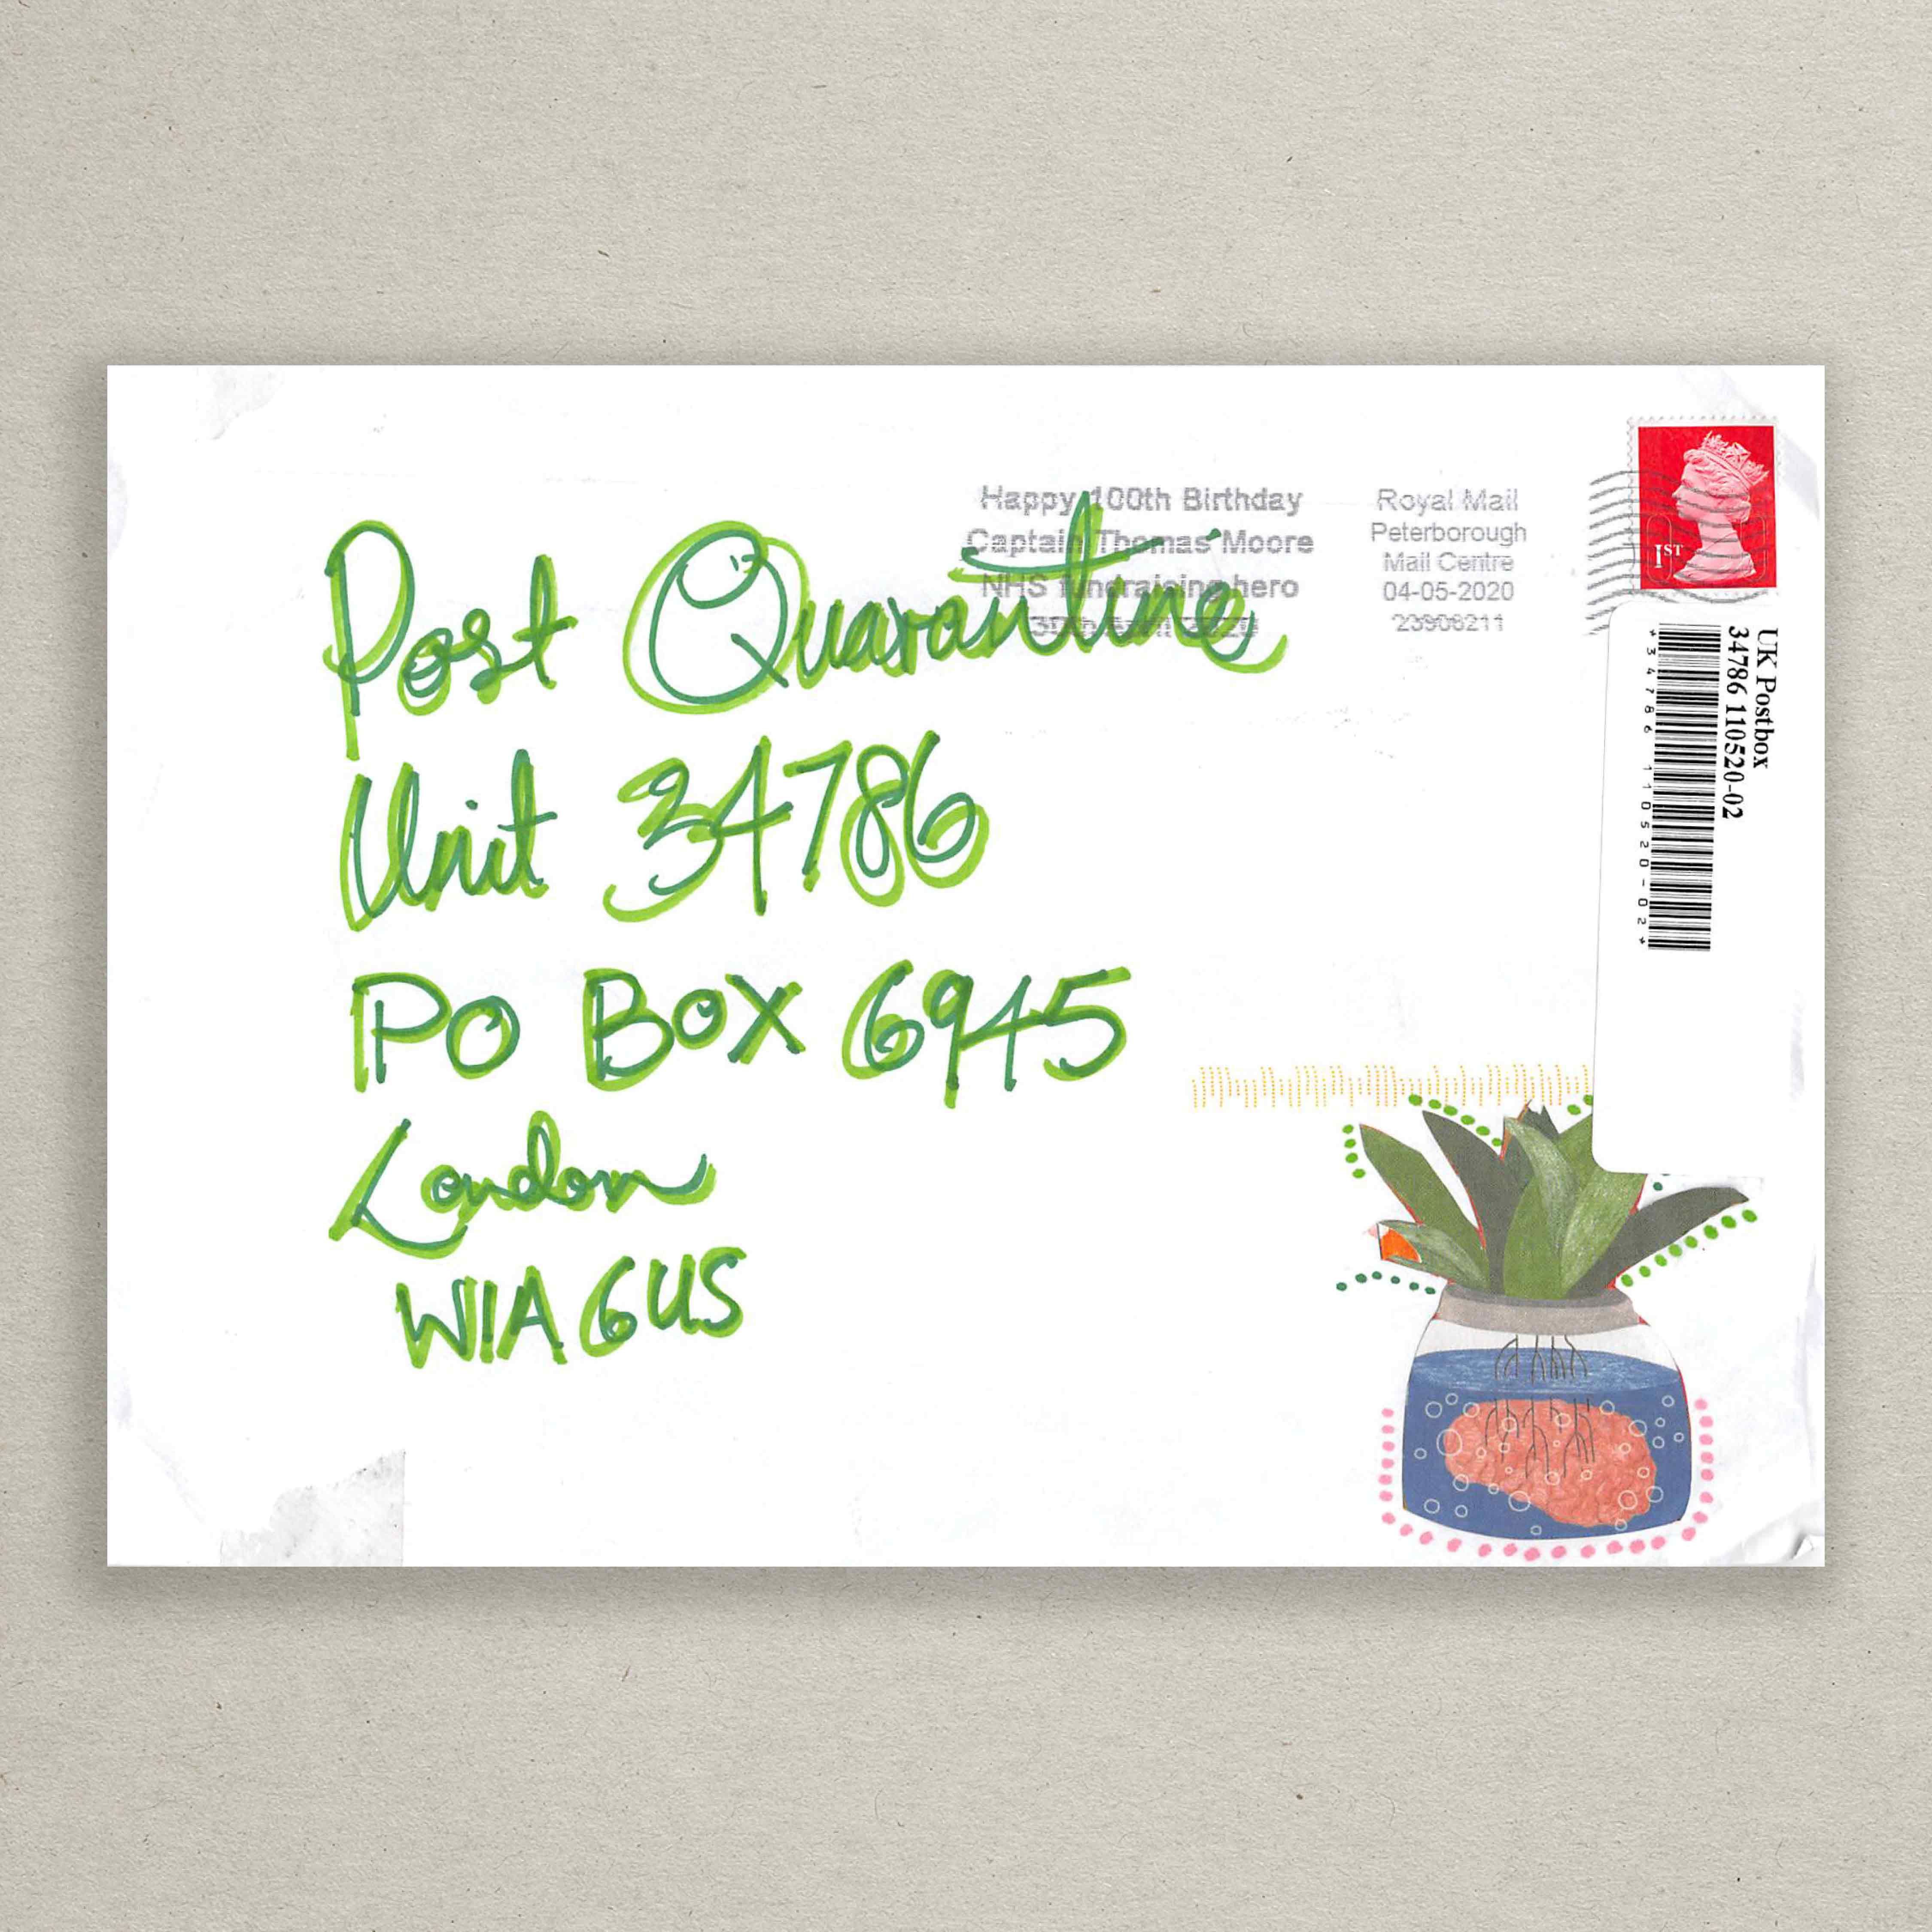 Happy 100th Birthday
Captain Thomas Moore
NHS fundraising hero
30th April 2020
Royal Mail
Peterborough
Mail Centre
04-05-2020
23906211
1ST
Post Quarantine
Unit 34786
PO BOX 6945
London
W1A 6US
UK Postbox
34786 110520-02
*34786 110520-02*